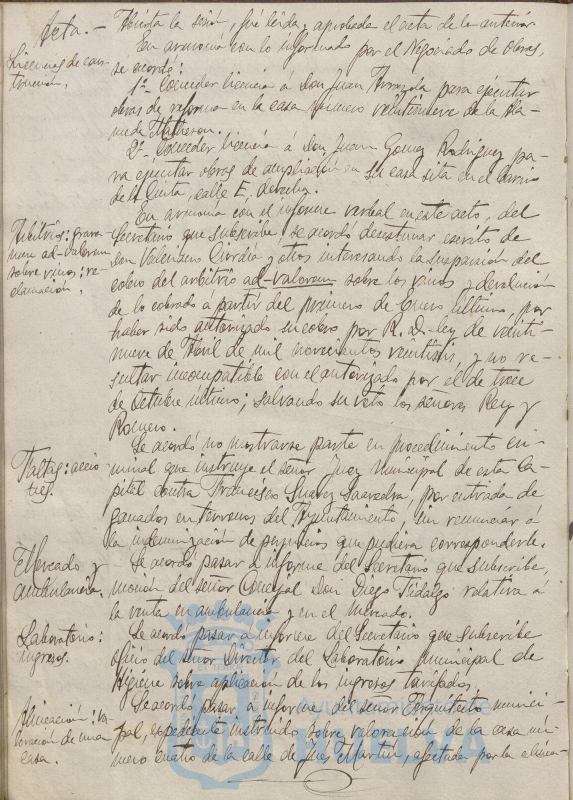 Acta.— Abierta la sesión, fué leída y aprobada el acta de la anterior.
En armonía con lo informado por el Negociado de Obras,
Licencias de cons-
trucción.
se acordó:
1º Conceder licencia á Don Juan para ejecutar
obras de reforma en la casa número veintinueve de la Pla-
2º Conceder licencia á Don Juan Gomez Rodriguez, pa-
ra ejecutar obras de ampliación en su casa sita en el Barrio
de la Quinta, calle E, derecha.
Arbitrios: grava-
men ad-valorem
sobre vinos: re-
clamación.
En armonía con el informe verbal en este acto, del
Secretario que subscribe, se acordó desestimar escrito de
Don Valeriano y otros interesando la suspensión del
cobro del arbitrio ad-valorem sobre los vinos y devolución
de lo cobrado á partir del primero de Enero último, por
haber sido autorizado su cobro por R. D.-ley de veinti-
nueve de Abril de mil novecientos veintiséis, y no re-
sultar incompatible con el autorizado por él de trece
de Octubre último; salvando su voto los señores Rey y
Romero.
Faltas: accio-
nes.
Se acordó no mostrarse parte en procedimiento cri-
minal que instruye el señor Juez Municipal de esta Ca-
pital contra Francisco Suarez Saavedra, por entrada de
ganados en terrenos del Ayuntamiento, sin renunciar á
la indemnización de perjuicios que pudiera corresponderle.
Mercado y
ambulancia.
Se acordó pasar á informe del Secretario que subscribe,
moción del señor Concejal Don Diego Fidalgo relativa á
la venta en ambulancia y en el Mercado.
Laboratorio:
ingresos.
Se acordó pasar á informe del Secretario que subscribe
oficio del señor Director del Laboratorio Municipal de
Higiene sobre aplicación de los ingresos tarifados.
Alineación: va-
loración de una
casa.
Se acordó pasar á informe del señor Arquitecto munici-
pal, expediente instruido sobre valoración de la casa nú-
mero cuatro de la calle de Martin, afectada por la alinea-